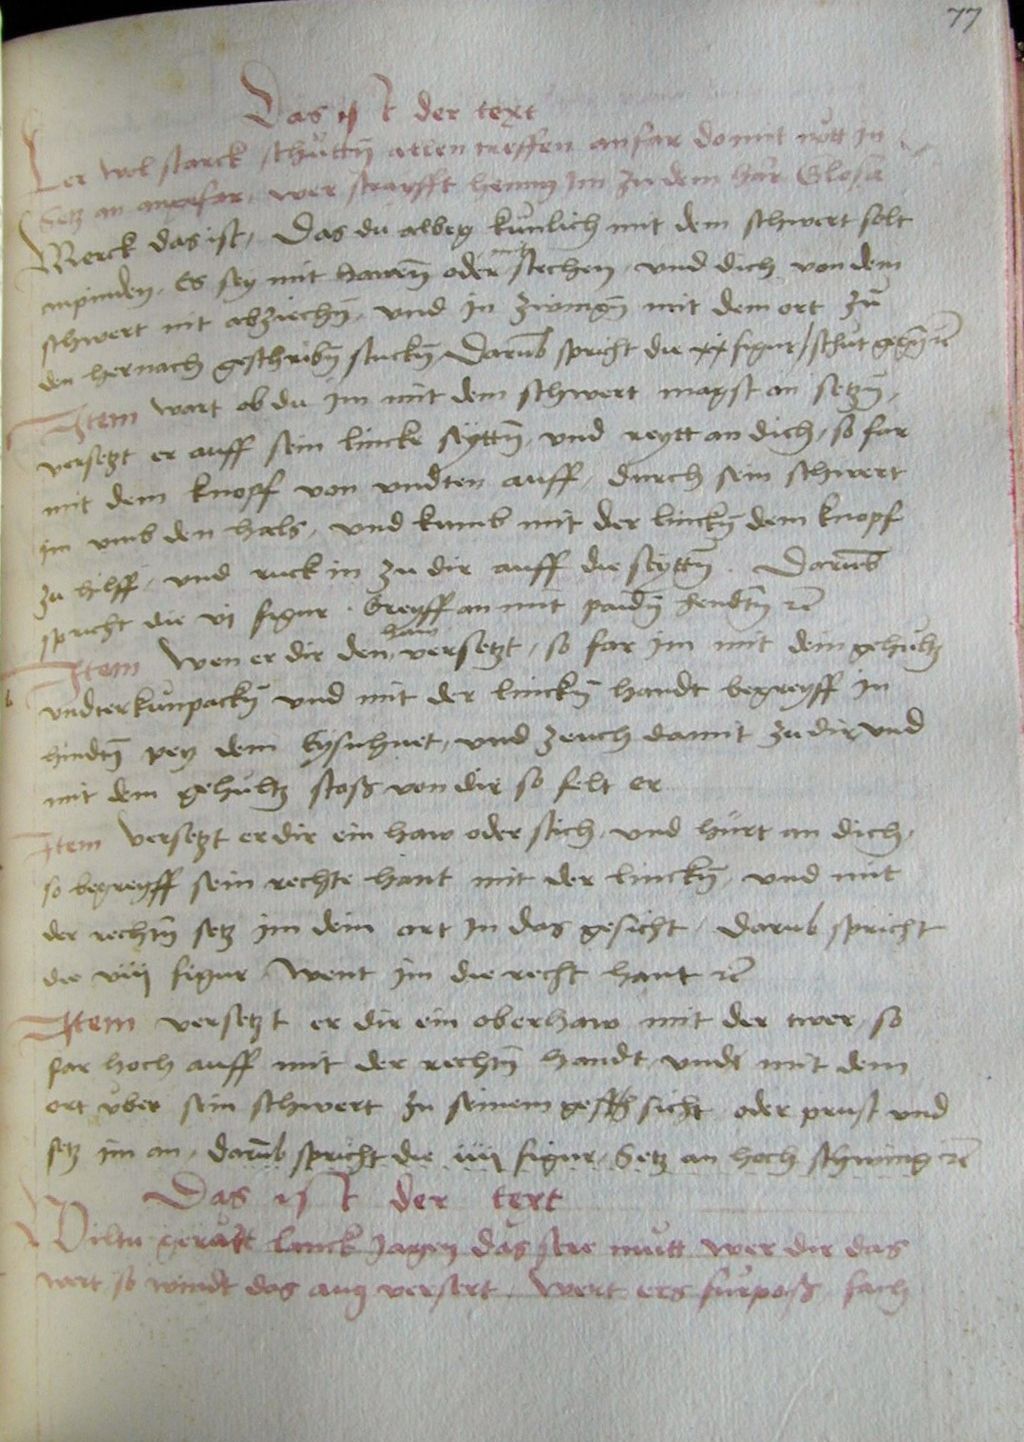 77
Das ist der text
Ler wol starck schuttn̄ allen treffen anfar do mit nott in
Setz an anefar, wer strayfft henng im zu dem har Glosa
Merck das ist, Das du albeg kunlich mit dem schwert solt
anpinden, Es sey mit hawen̄ oder mit stechen, und dich von dem
schwert nit abziechn̄, und in zwingn̄ mit dem ort zu
den hernach geschribn̄ stuckn̄ Darūb spricht die figur, schut gegn̄ rc
Item wart ob du im mit dem schwert magst an setzn̄,
versetzt er auff sein lincke seyttn̄, und reytt an dich, so far
mit dem knopf von undten auff, durch sein schwert
im umb den hals, und kumb mit der linckn̄ dem knopf
zu hilff, und ruck in zu dir auff die seyttn̄. Darūb
spricht die vi figur. Greyff an mit paidn̄ hendtn̄ rc
Item Wen er dir den haw versetzt, so far im mit dein gehultz
undter kunpackn̄ und mit der linckn̄ handt begreyff in
hindtn̄ pey dem Eysnhuet, und zeuch damit zu dir und
mit dem gehultz stoß von dir so felt er
Item versetzt er dir ein haw oder stich, und hurt an dich,
so begreyff sein rechte hant mit der linckn̄, und mit
der rechtn̄ setz im dein ort in das gesicht, Darub spricht
die viij figur, Went im die recht hant rc
Item versetzt er dir ein oberhaw mit der twer, so
far hoch auff mit der rechtn̄ handt, undt mit dem
ort uber sein schwert zu seinem gesicht oder prust und
setz im an, Darūb spricht die iiij figur, Setz an hoch schwing rc
Das ist der text
Wiltu gerūtt lanck jagen das sere mutt wer dir das
wert, so windt das aug versert. Wert ers furpaß, fach